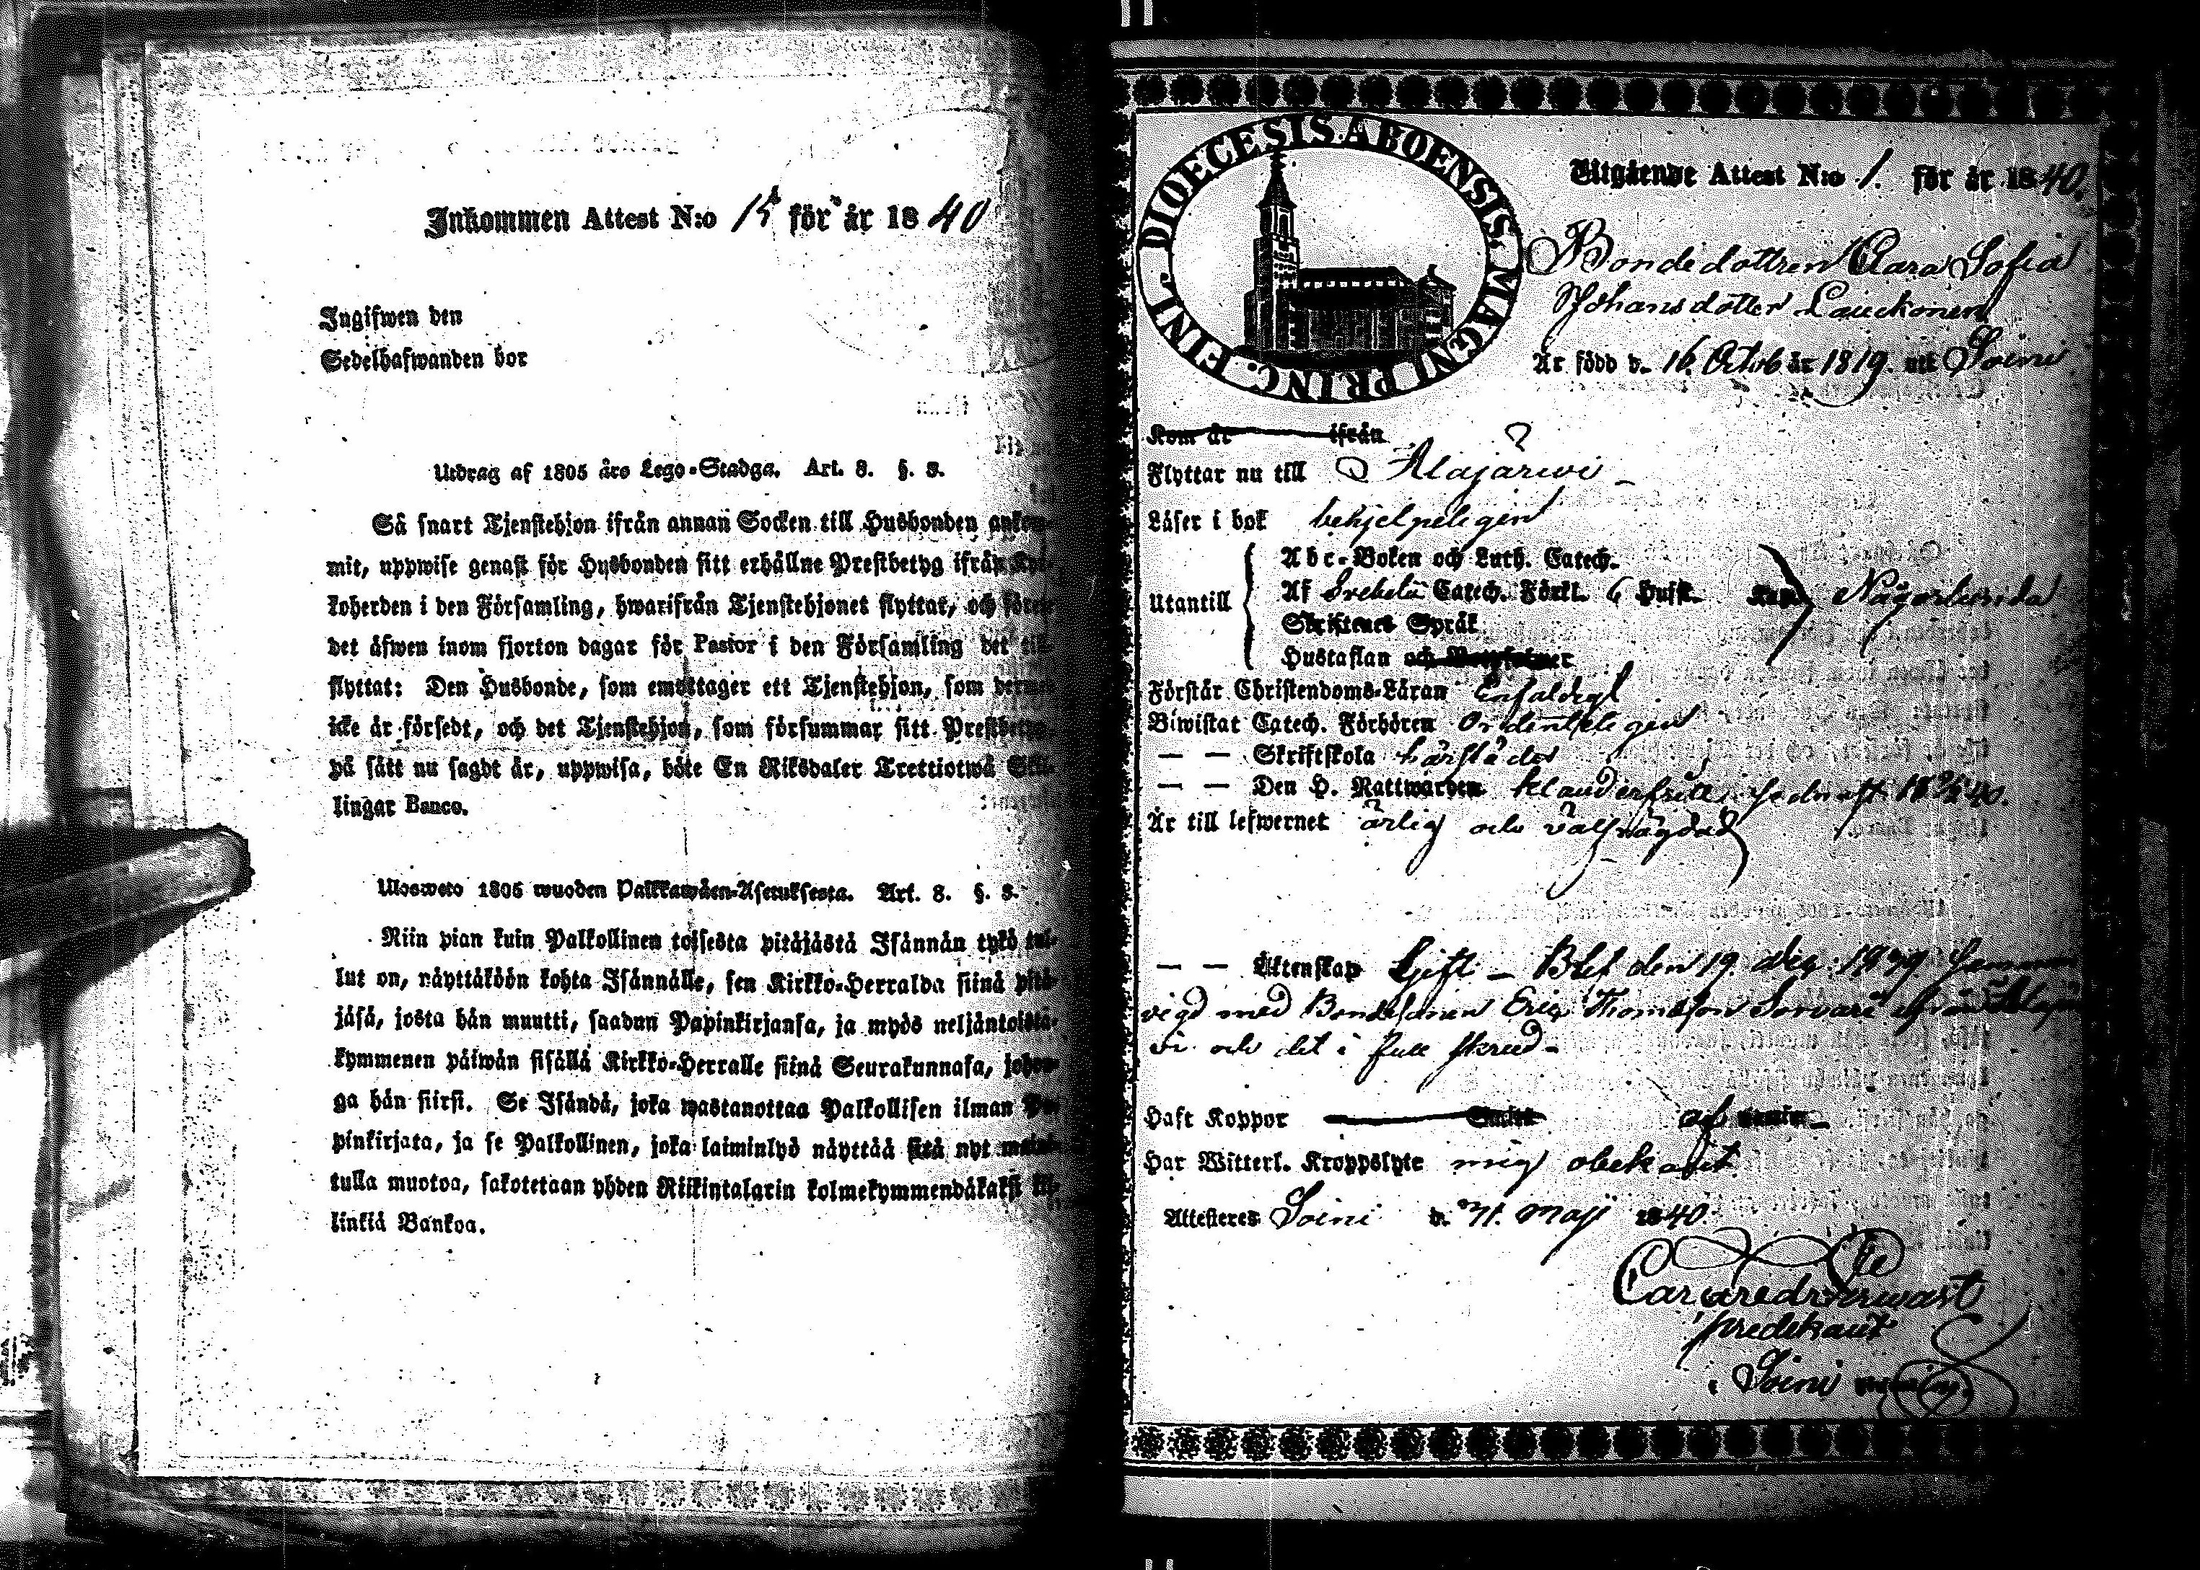 Inkommen Attest N:o 15 för år 1840
Ingifwen den
Sedelhafwanden bor
Utdrag af 1805 års Lego-Stadga. Art. 8. §. 3.
Så snart Tjenstehjon ifrån annan Socken till Husbonden
mit, uppwise genast för Husbonden sitt erhållne Prestbetyg ifrån
koherden i den Församling, hwarifrån Tjenstehjonet flyttat, och
det äfwen inom fjorton dagar för Pastor i den Församling det
flyttat: Den Husbonde, som emottager ett Tjenstehjon, som
icke är försedt, och det Tjenstehjon, som försummar sitt
på sätt nu sagdt är, uppwisa, böte En Riksdaler Trettiotwå
lingar Banco.
Ulosweto 1805 wuoden Palkkawäen-Asetuksesta. Art. 8. §. 3.
Niin pian kuin Palkollinen toisesta pitäjästä Isännän tykö
lut on, näyttäköön kohta Isännälle, sen Kirkko-Herralda siinä
jäsä, josta hän muutti, saadun Papinkirjansa, ja myös
kymmenen päiwän sisällä Kirkko-Herralle siinä Seurakunnasa,
ga hän siirsi. Se Isändä, joka wastanottaa Palkollisen ilman
pinkirjata, ja se Palkollinen, joka laiminlyö näyttää sitä nyt
tulla muotoa, sakotetaan yhden Riikintalarin kolmekymmendäkaksi
linkiä Bankoa.
DIOECESIS ABOENSIS. MAGNI PRINC. FINL.
Utgående Attest N:o 1. för år 1840.
Bondedottren Clara Sofia
Johansdotter Lauckonen
Är född d. 16 Octob år 1819. uti Soini
Kom år ifrån
Flyttar nu till Alajärwi
Läser i bok behjelpeligen
Utantill
Abc-Boken och Luth. Catech.
Af Svebelii Catech. Förkl. 6 Hufst. Någorlunda
Skriftenes Språk
Hustaflan och
Förstår Christendoms-Läran Enfaldigt
Biwistat Catech. Förhören Ordenteligen
— — Skriftskola härstädes
— — Den H. Nattwarden klanderfritt,
Är till lefwernet ärlig och välfrägdad
— — Äktenskap Gift — Blef den 19. Dec. 1839
vigd med Bondesonen Eric Thomasson Sorvari ifrån
vi och det i full skrud-
Haft Koppor af
Har Witterl. Kroppslyte mig obekant
Attesteras Soini d. 31. Maji 1840.
predekant
i Soini